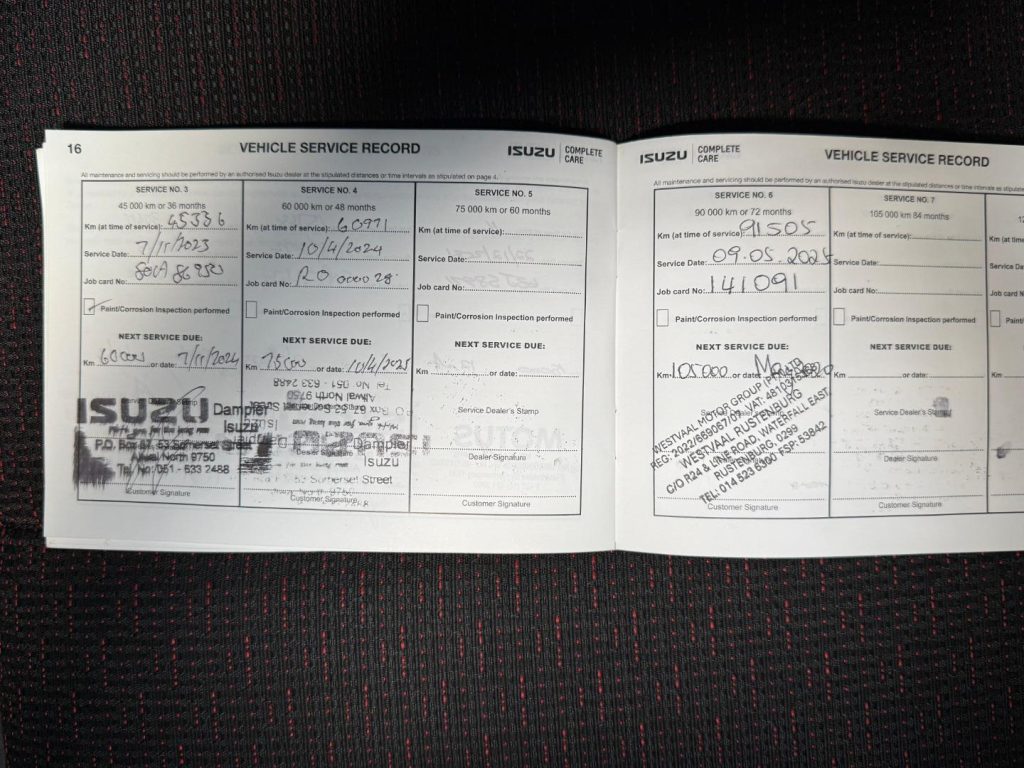 16
VEHICLE SERVICE RECORD
ISUZU COMPLETE CARE
All maintenance and servicing should be performed by an authorised Isuzu dealer at the stipulated distances or time intervals as stipulated on page 4.
SERVICE NO. 3
45 000 km or 36 months
Km (at time of service): 45336
Service Date: 7/11/2023
Job card No:
Paint/Corrosion Inspection performed
NEXT SERVICE DUE:
Km 60000 or date: 7/11/2024
ISUZU Dampier
Isuzu
P.O. Box 67, 53 Somerset Street
Aliwal North 9750
Tel. No: 051 - 633 2488
Customer Signature
SERVICE NO. 4
60 000 km or 48 months
Km (at time of service): 60971
Service Date: 10/4/2024
Job card No: RO 000028
Paint/Corrosion Inspection performed
NEXT SERVICE DUE:
Km 75000 or date: 10/4/2025
Tel. No: 051 - 633 2488
Aliwal North 9750
Dampier
Isuzu
Somerset Street
Customer Signature
SERVICE NO. 5
75 000 km or 60 months
Km (at time of service):
Service Date:
Job card No:
Paint/Corrosion Inspection performed
NEXT SERVICE DUE:
Km or date:
Service Dealer's Stamp
Dealer Signature
Customer Signature
ISUZU COMPLETE CARE
VEHICLE SERVICE RECORD
All maintenance and servicing should be performed by an authorised Isuzu dealer at the stipulated distances or time intervals as
SERVICE NO. 6
90 000 km or 72 months
Km (at time of service): 91505
Service Date: 09.05.2025
Job card No: 141091
Paint/Corrosion Inspection performed
NEXT SERVICE DUE:
Km 105000 or date:
WESTVAAL MOTOR GROUP
WESTVAAL RUSTENBURG
C/O R24 & MINE ROAD WATERFALL EAST
RUSTENBURG 0299
TEL: 014 523 6300 FSP: 53842
Customer Signature
SERVICE NO. 7
105 000 km 84 months
Km (at time of service):
Service Date:
Job card No:
Paint/Corrosion Inspection performed
NEXT SERVICE DUE:
Km or date:
Service Dealer's Stamp
Dealer Signature
Customer Signature